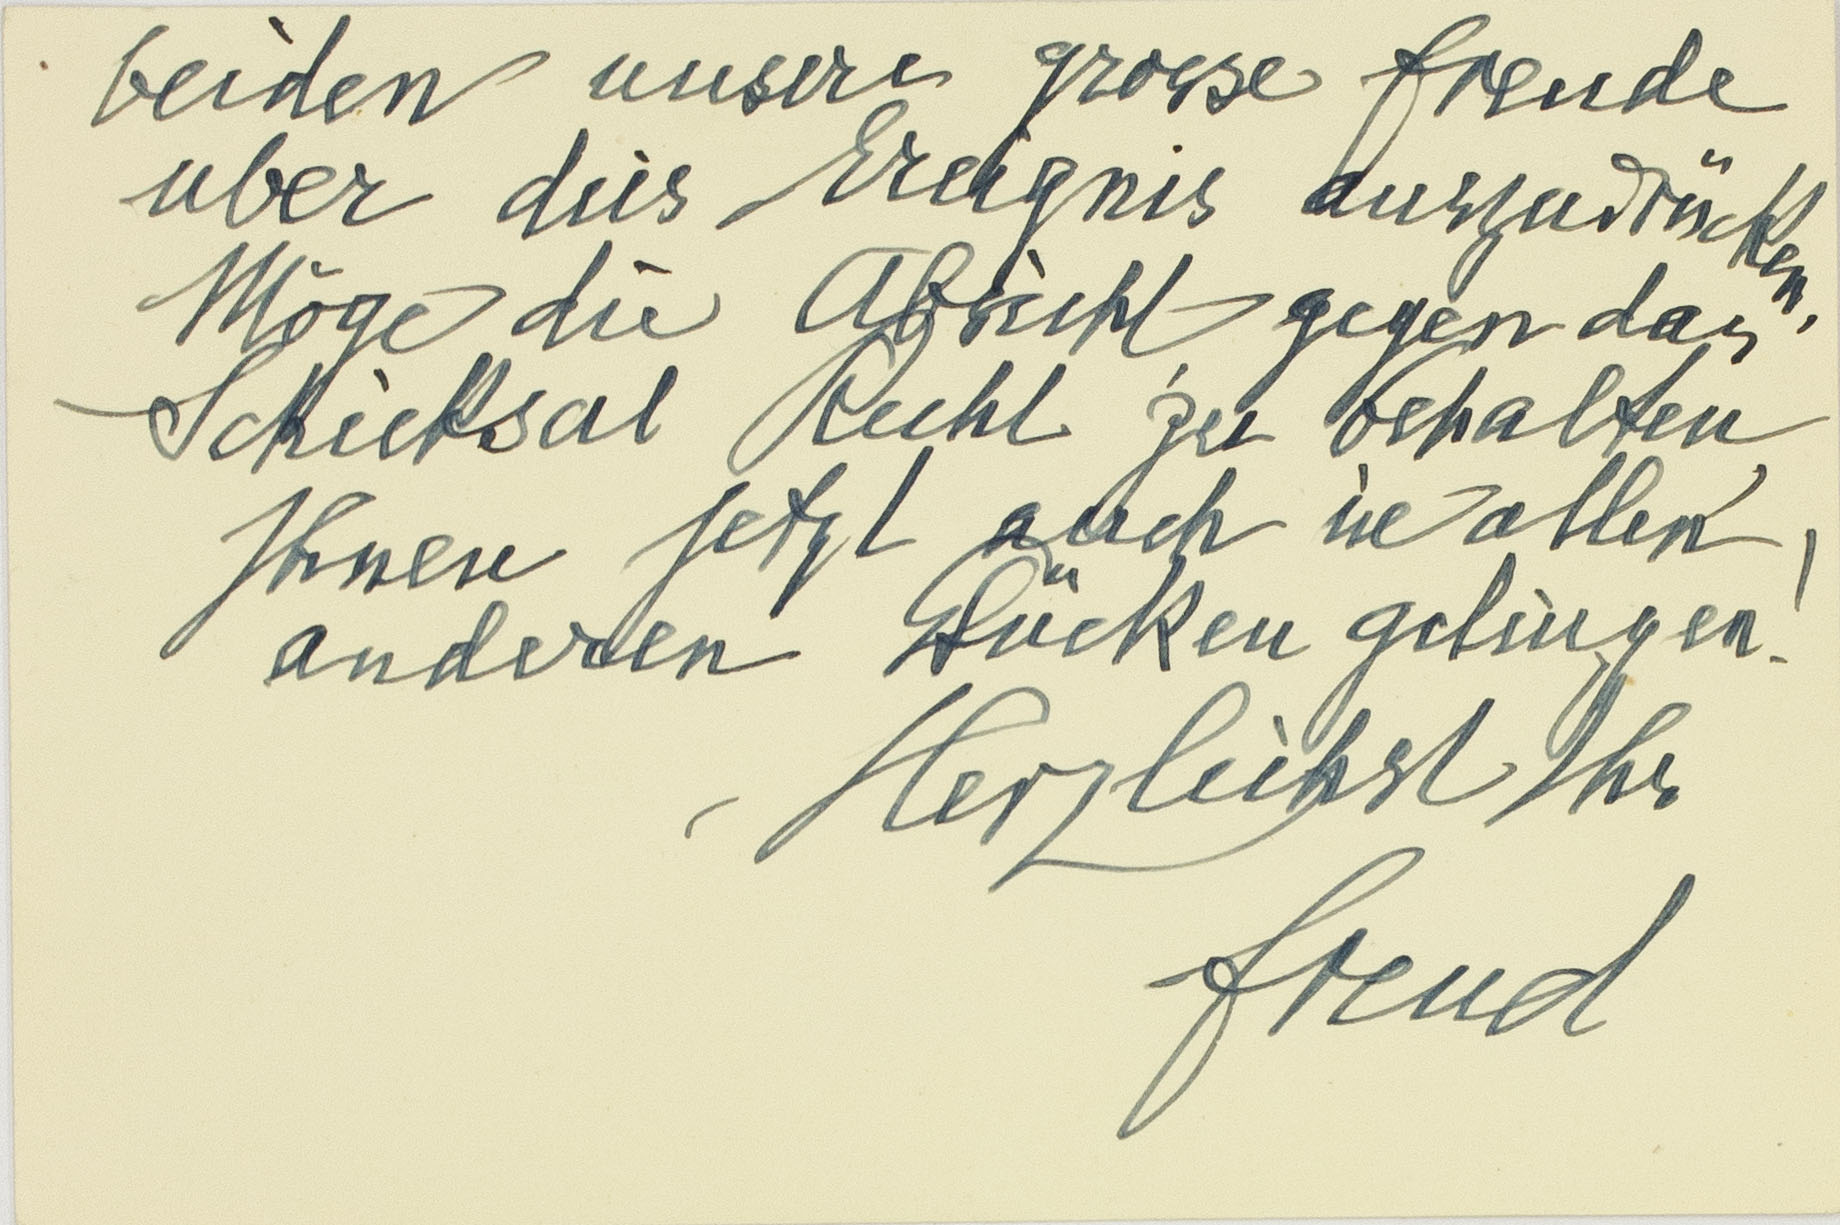 beiden unsere grosse Freude
über dies Ereignis auszudrücken.
Möge die Absicht gegen das
Schicksal Recht zu behalten,
Ihnen jetzt auch in allen
anderen Stücken gelingen!
Herzlichst Ihr
Freud